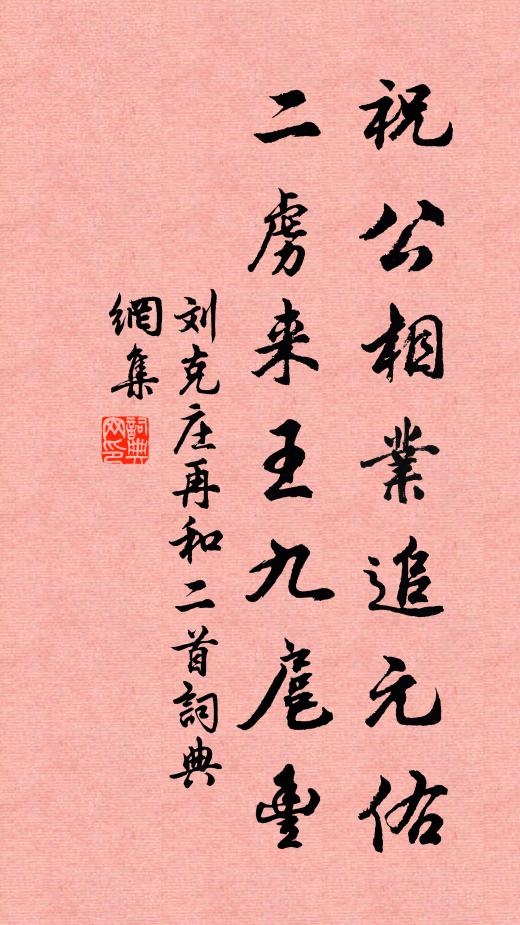 祝公相業追元佑
二虜来王九扈豊
刘克庄再和二首詞典
網集
詞典
网印